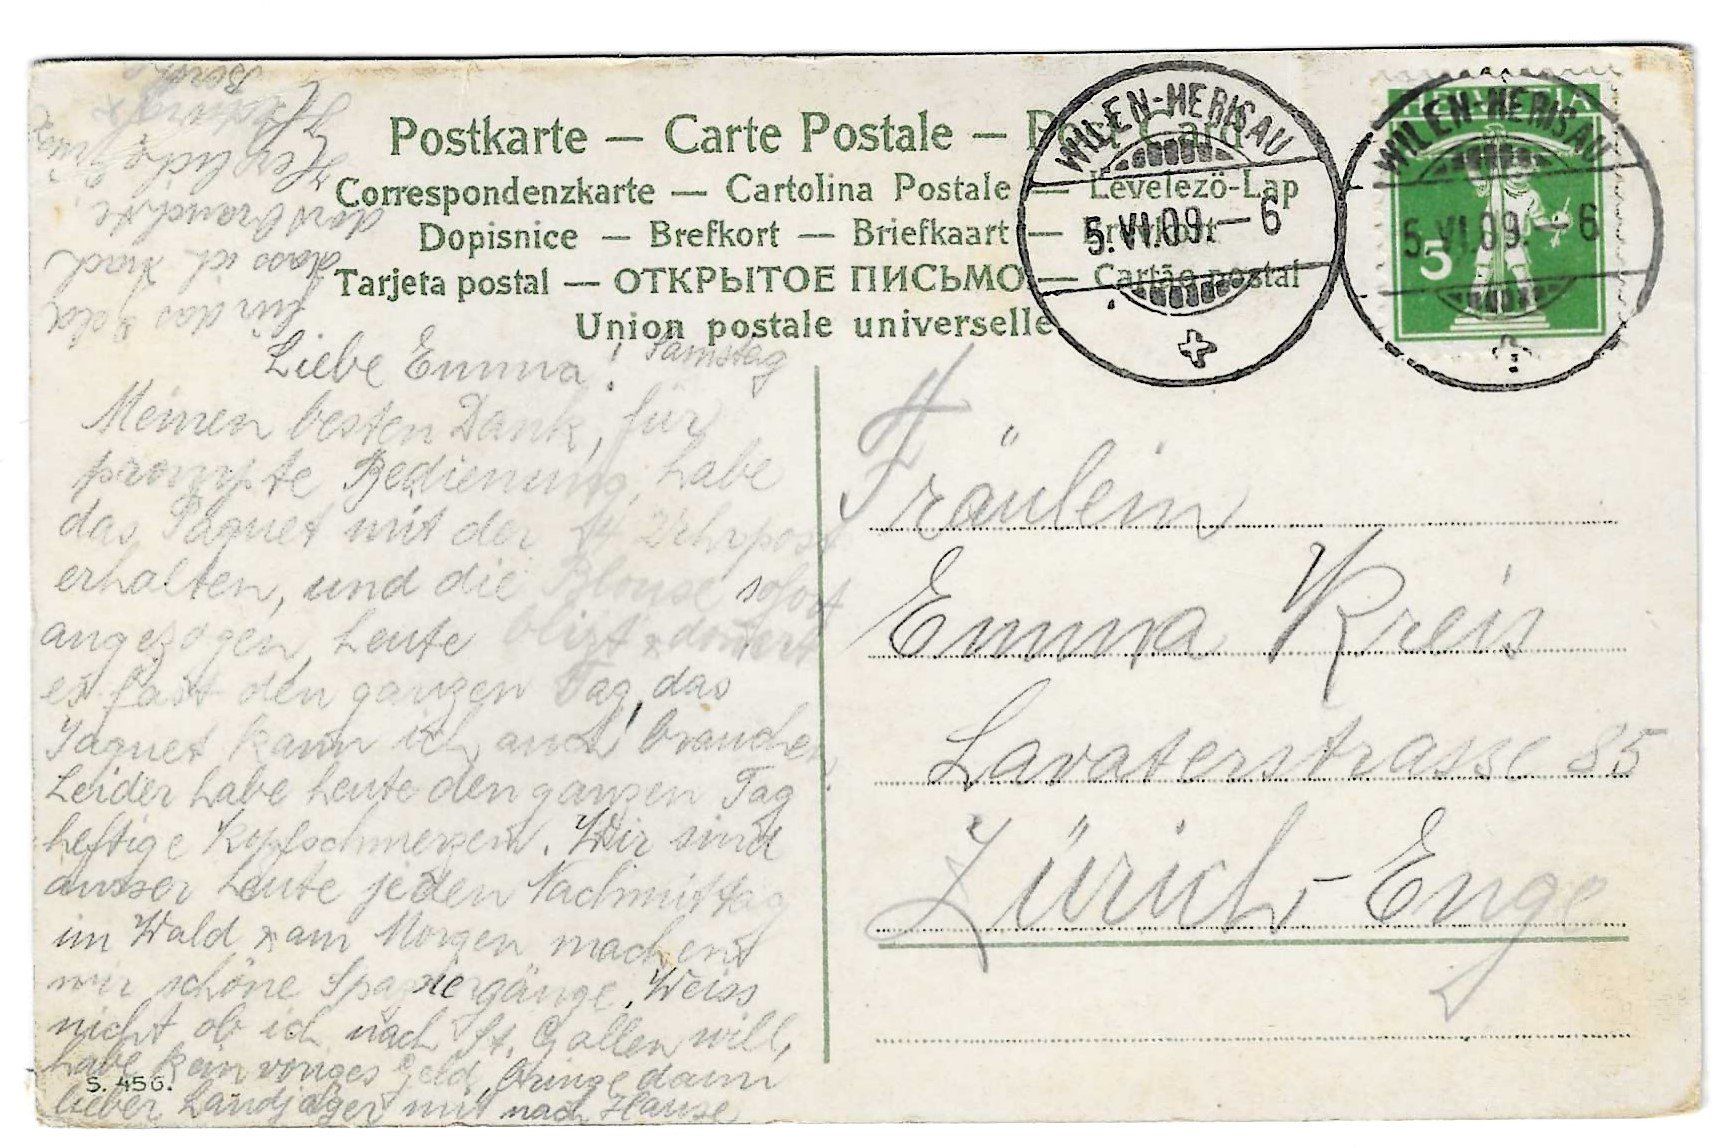 Postkarte — Carte Postale — Post Card
Correspondenzkarte — Cartolina Postale — Levelező-Lap
Dopisnice — Brefkort — Briefkaart — Brevkort
Tarjeta postal — ОТКРЫТОЕ ПИСЬМО — Cartão postal
Union postale universelle
WILEN-HERISAU
5.VI.09.—6
WILEN-HERISAU
5.VI.09.—6
HELVETIA
5
Samstag
Liebe Emma!
Meinen besten Dank, für
prompte Bedienung, habe
das Paquet mit der 11 Uhrpost
erhalten, und die Blouse sofort
angezogen, heute blizt & donnert
es fast den ganzen Tag, das
Jaquet kann ich auch brauchen
Leider habe heute den ganzen Tag
heftige Kopfschmerzen. Wir sind
ausser heute jeden Nachmittag
im Wald & am Morgen machen
wir schöne Spaziergänge. Weiss
nicht ob ich nach St. Gallen will,
habe kein Geld, bringe dann
lieber Landjäger mit nach Hause
für das Geld
dass ich noch
dort brauchte.
Herzliche Grüsse
Bertha
Fräulein
Emma Kreis
Lavaterstrasse 85
Zürich-Enge
S. 456.